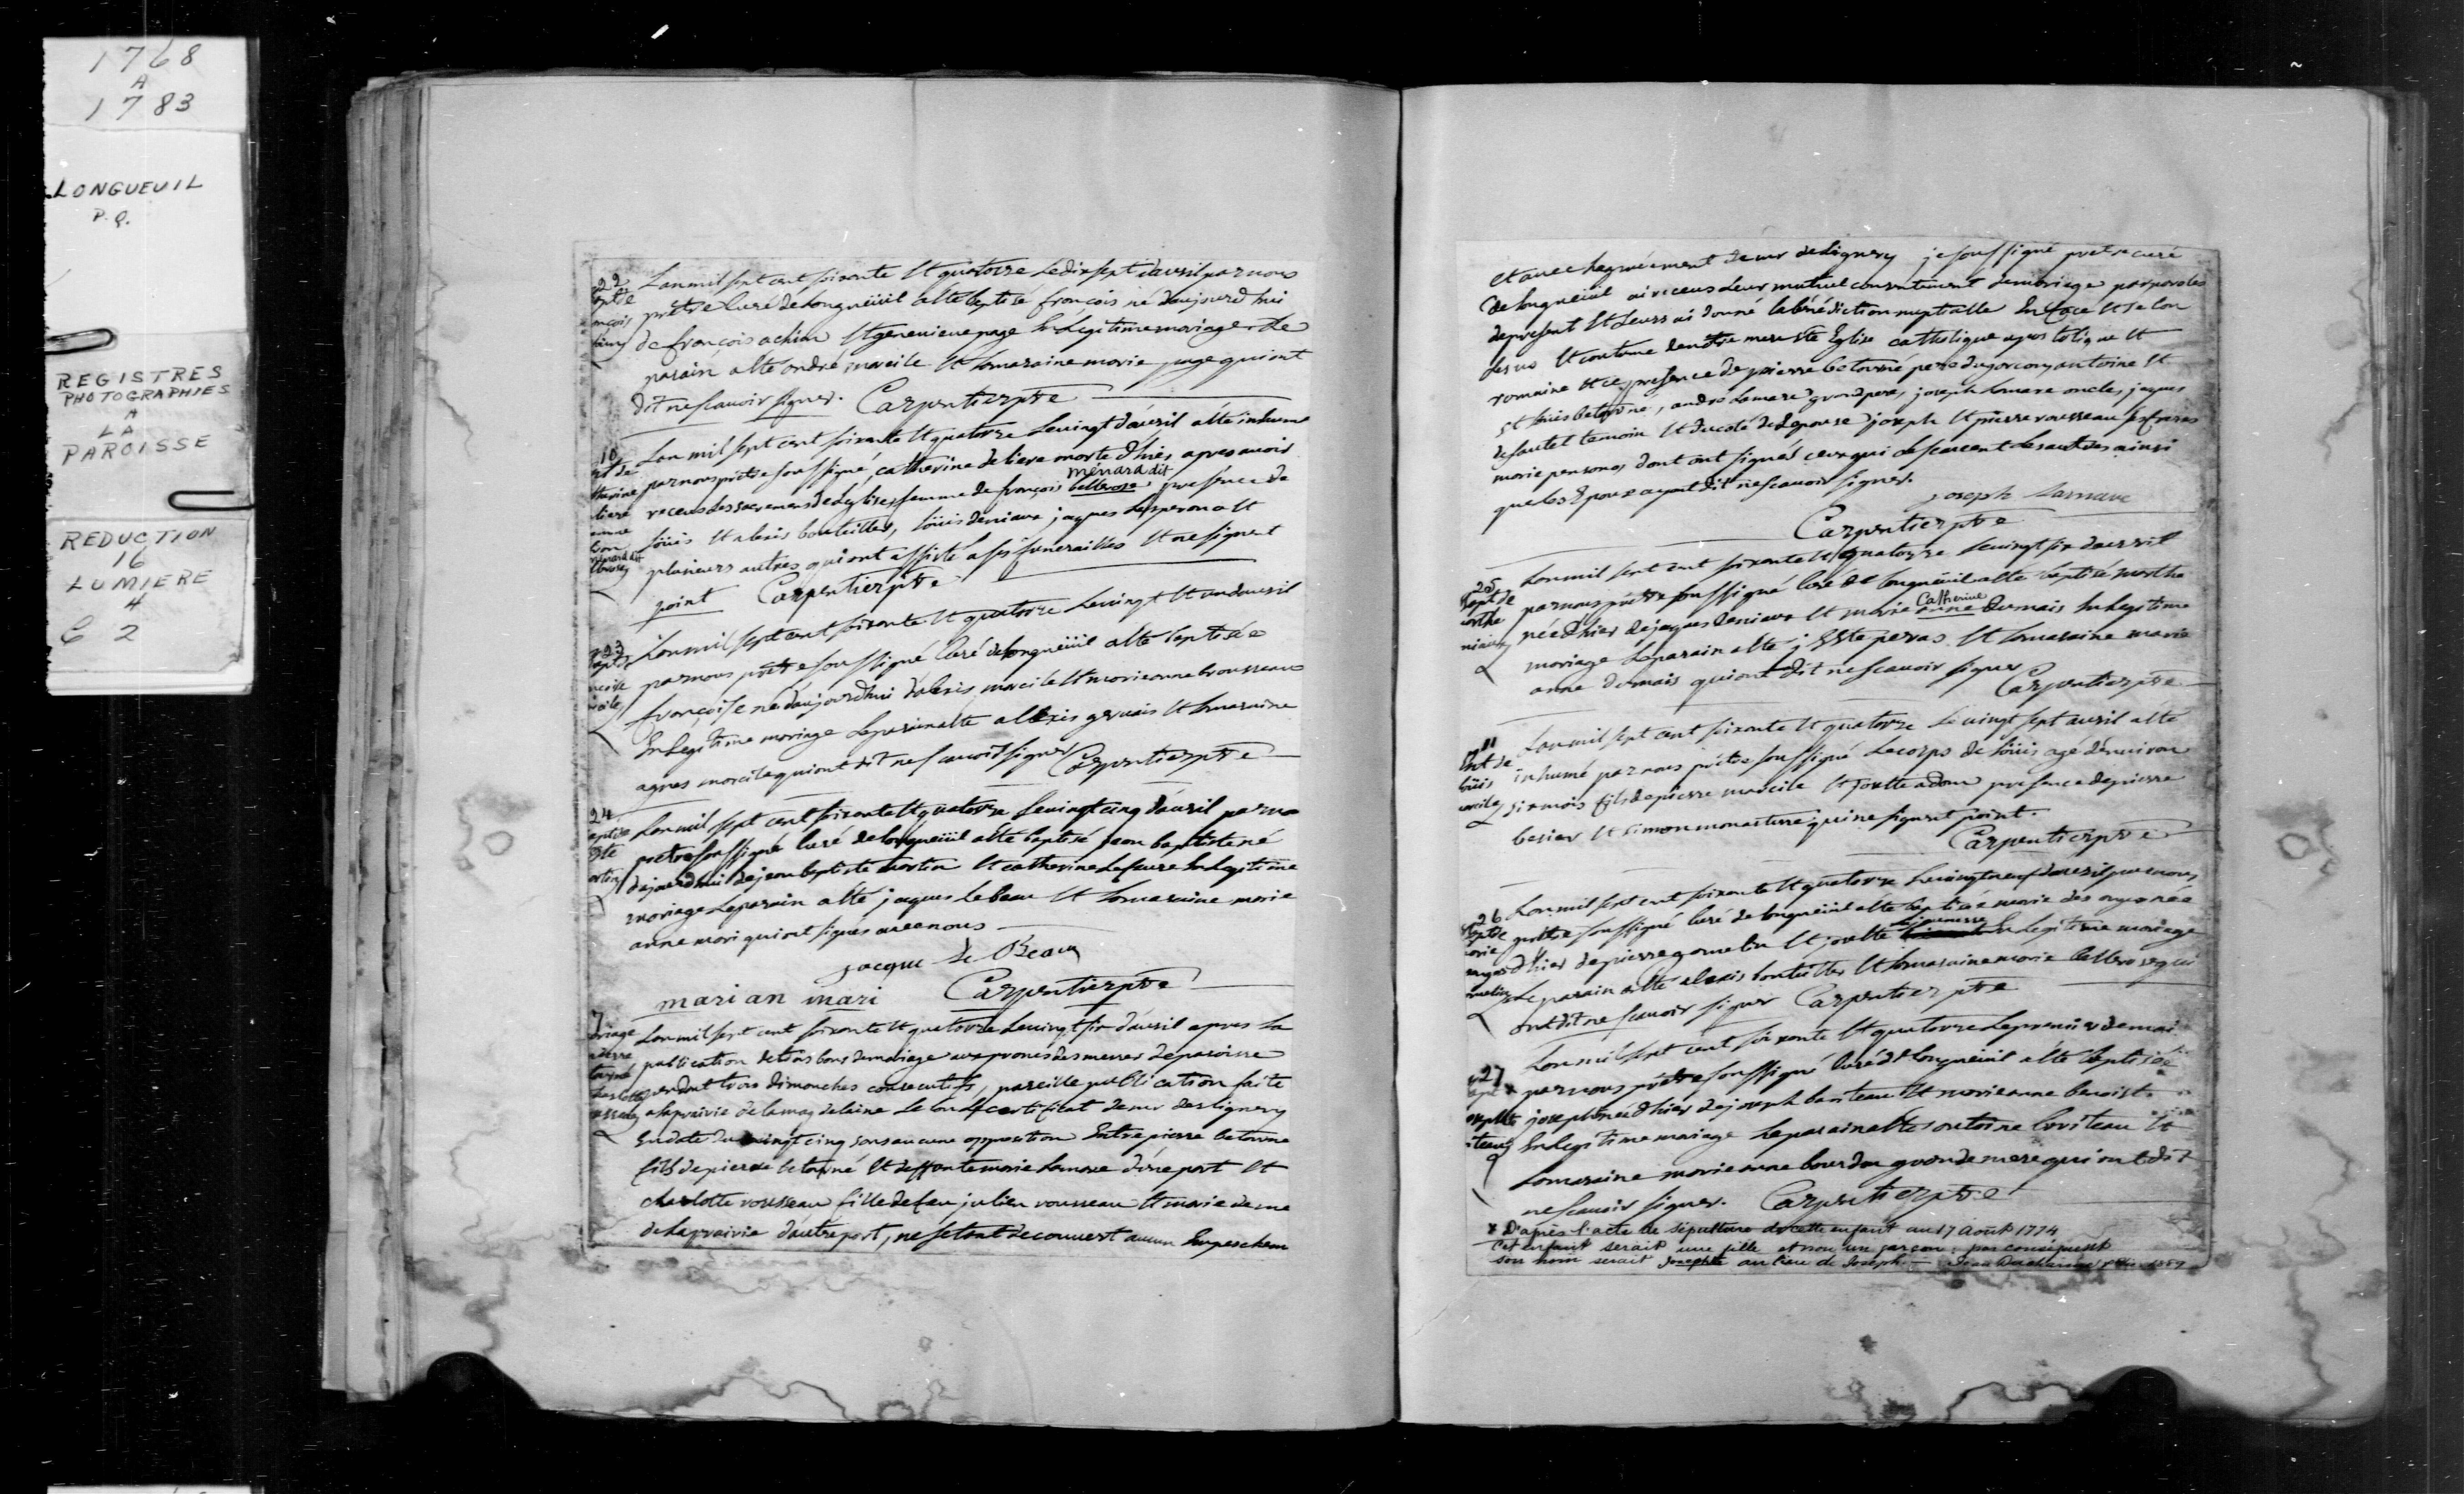 1768
A
1783
LONGUEUIL
P.Q.
REGISTRES
PHOTOGRAPHIES
A
LA
PAROISSE
REDUCTION
16
LUMIERE
4
C 2
22 Lan mil sept cent soixante et quatorze le dix sept davril par nous
prêtre curé de longueüil a été baptisé françois né daujourd'hui
de françois achim et genevieve page en legitime mariage. Le
parain a été andré marcile et la maraine marie page qui ont
dit ne scavoir signer. Carpentier ptre
10 Lan mil sept cent soixante et quatorze le vingt davril a été inhumé
par nous prêtre soussigné, catherine de liere morte d'hier apres avoir
ménard dit
receus des sacremens de leglise, femme de françois bellerose presence de
loüis et alexis bouteiller, loüis deniaux jaques lesperon et
plusieurs autres qui ont assisté a ses funerailles et ne signent
point Carpentier ptre
23 Lan mil sept cent soixante et quatorze le vingt et un davril
par nous prêtre soussigné curé de longueüil a été baptisée
françoise né daujourdhui dalexis marcile et marie anne brousseau
en legitime mariage le parain a été allexis gervais et la maraine
agnes marcile qui ont dit ne scavoir signer Carpentier ptre
24 Lan mil sept cent soixante et quatorze le vingt cinq davril par no
prêtre soussigné curé de longueüil a été baptisé jean baptiste né
daujourdhui de jean baptiste martin et catherine lefevre en legitime
mariage le parain a été jaques lebeau et la maraine marie
anne mari qui ont signés avec nous
jacque Le Beau
marian mari Carpentier ptre
7 Lan mil sept cent soixante et quatorze le vingt six davril apres la
publication de trois bans de mariage aux prones des messes de paroisse
pendant trois dimanches consecutifs, pareille publication faite
a la prairie de la magdelaine selon le certificat de mr deslignery
en date du vingt cinq sans aucune opposition entre pierre betourné
fils de pierre betourné et deffunte marie lamare d'une part et
charlotte rousseau fille de feu julien rousseau et marie deme
de laprairie dautre part, ne setant decouvert aucun empeschem
et avec lagreement de mr deslignery je soussigné pretre curé
de longueüil ai receus leur mutuel consentement de mariage par paroles
de present et leurs ai donné la bénédiction nuptialle en face et selon
les us et coutume de notre mere ste Eglise catholique apostolique et
romaine et ce presence de pierre betourné pere du garcon, antoine et
et loüis betourné, andré lamare grandpere, joseph lamare oncle, jaques
desautel temoin et du coté de lepouse joseph et pierre rousseau ses freres
marie dont ont signés ceux qui le scavent les autres ainsi
que les Epoux ayant dit ne scavoir signer.
joseph Lamare
Carpentier ptre
25 Lan mil sept cent soixante et quatorze le vingt six davril
par nous prêtre soussigné curé de longueüil a été baptisé marthe
Catherine
née d'hier de jaques deniaux et marie anne dumais en legitime
mariage le parain a été j Bste peras et la maraine marie
anne dumais qui ont dit ne scavoir signer Carpentier ptre
11 Lan mil sept cent soixante et quatorze le vingt sept avril a été
inhumé par nous prêtre soussigné le corps de loüis agé d'environ
six mois fils de pierre marcile et jostte adam presence de pierre
berier et simon monasterse qui ne signent point.
Carpentier ptre
26 Lan mil sept cent soixante et quatorze le vingt neuf davril par nous
prêtre soussigné curé de longueüil a été baptisée marie des anges née
d'hier de pierre gomelin et jostte en legitime mariage
Le parain a été alexis bouteiller et la maraine marie bellerose qui
ont dit ne scavoir signer Carpentier ptre
27 Lan mil sept cent soixante et quatorze le premier de mai
par nous prêtre soussigné curé de longueüil a été baptisé
joseph né d'hier de joseph bariteau et marieanne benoist
en legitime mariage le parain a été antoine bariteau et
la maraine marieanne bourdon grande mere qui ont dit
ne scavoir signer. Carpentier ptre
* D'après l'acte de sépulture de cette enfant au 17 Août 1774
cet enfant serait une fille et non un garçon; par conséquent
son nom serait Josephte au lieu de Joseph. —